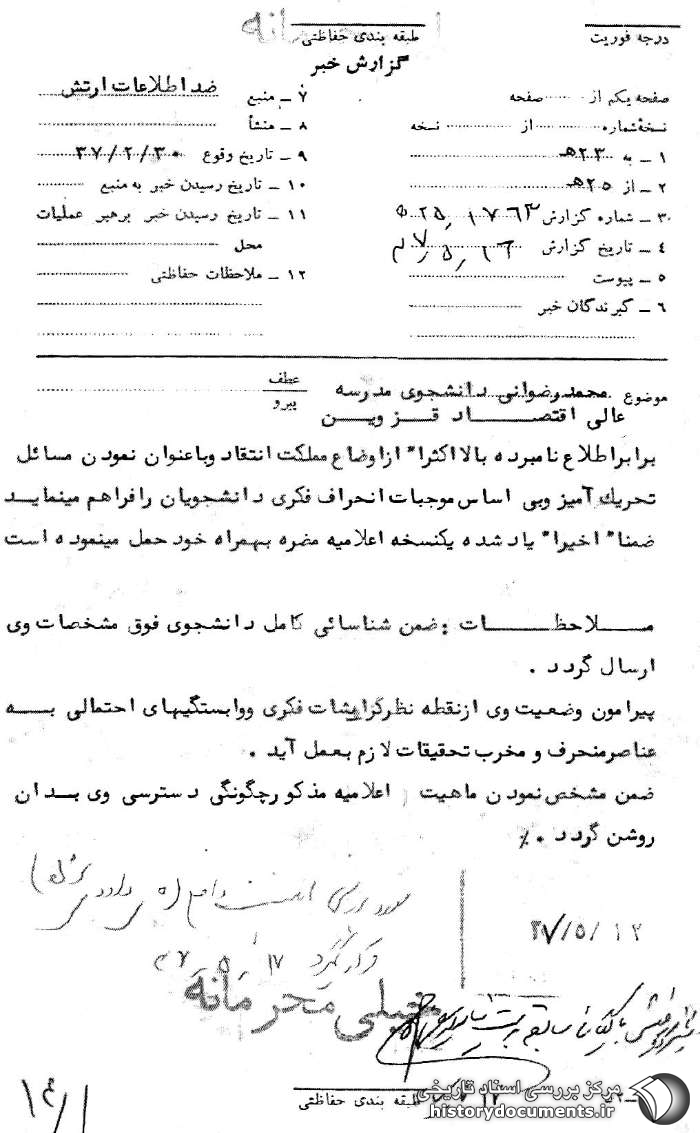 درجه فوریت
طبقه بندی حفاظتی
گزارش خبر
صفحه یکم از صفحه
نسخهٔ شماره از نسخه
۱ ـ به ۲۳هـ
۲ ـ از ۲۵هـ
۳ ـ شماره گزارش
۴ ـ تاریخ گزارش
۵ ـ پیوست
۶ ـ گیرندگان خبر
۷ ـ منبع ضد اطلاعات ارتش
۸ ـ منشأ
۹ ـ تاریخ وقوع ۳۷/۲/۳۰
۱۰ ـ تاریخ رسیدن خبر به منبع
۱۱ ـ تاریخ رسیدن خبر برهبر عملیات
محل
۱۲ ـ ملاحظات حفاظتی
موضوع محمد رضوانی دانشجوی مدرسه
عالی اقتصاد قزوین
عطف
پیرو
برابر اطلاع نامبرده بالا اکثرا" از اوضاع مملکت انتقاد وباعنوان نمودن مسائل
تحریک آمیز وبی اساس موجبات انحراف فکری دانشجویان را فراهم مینماید
ضمنا" اخیرا" یاد شده یکنسخه اعلامیه مضره بهمراه خود حمل مینموده است
ملاحظات : ضمن شناسائی کامل دانشجوی فوق مشخصات وی
ارسال گردد .
پیرامون وضعیت وی ازنقطه نظرگرایشات فکری ووابستگیهای احتمالی به
عناصرمنحرف و مخرب تحقیقات لازم بعمل آید .
ضمن مشخص نمودن ماهیت اعلامیه مذکور چگونگی دسترسی وی بدان
روشن گردد .٪
قرار گیرد ۱۷
خیلی محرمانه
طبقه بندی حفاظتی
مرکز بررسی اسناد تاریخی
historydocuments.ir